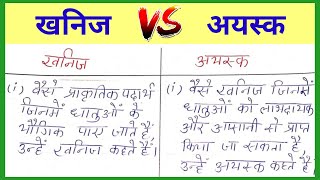 खनिज VS अयस्क
खनिज
अयस्क
(i) वैसे प्राकृतिक पदार्थ
जिनमें धातुओं के
यौगिक पाए जाते हैं,
उन्हें खनिज कहते हैं।
(i) वैसे खनिज जिनमें
धातुओं को लाभदायक
और आसानी से प्राप्त
किया जा सकता है,
उन्हें अयस्क कहते हैं